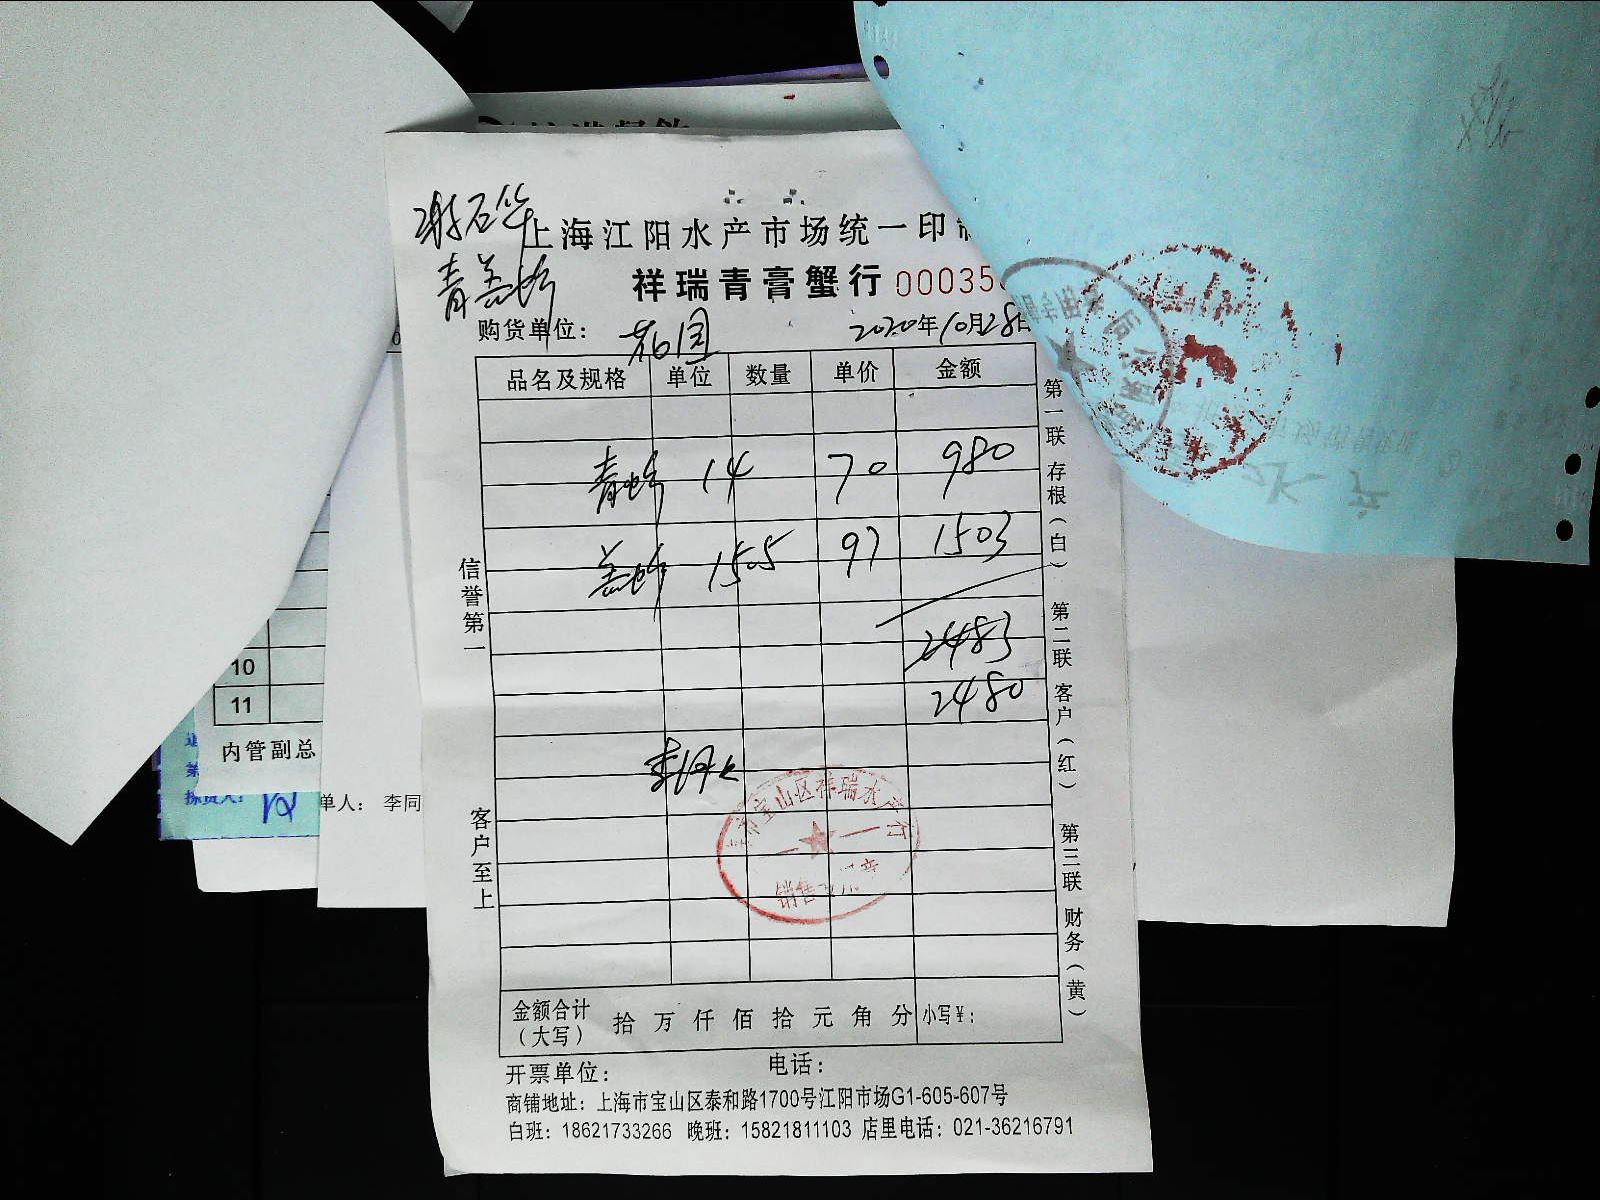 上海江阳水产市场统一印制
祥瑞青膏蟹行 00035
购货单位： 花园 2020年10月28日
品名及规格 单位 数量 单价 金额
青蟹 14 70 980
盖蟹 15.5 97 1503
2483
2480
信誉第一
客户至上
第一联 存根（白） 第二联 客户（红） 第三联 财务（黄）
宝山区祥瑞水产行
销售
金额合计（大写） 拾 万 仟 佰 拾 元 角 分 小写¥：
开票单位： 电话：
商铺地址：上海市宝山区泰和路1700号江阳市场G1-605-607号
白班：18621733266 晚班：15821811103 店里电话：021-36216791
10
11
内管副总
单人： 李同